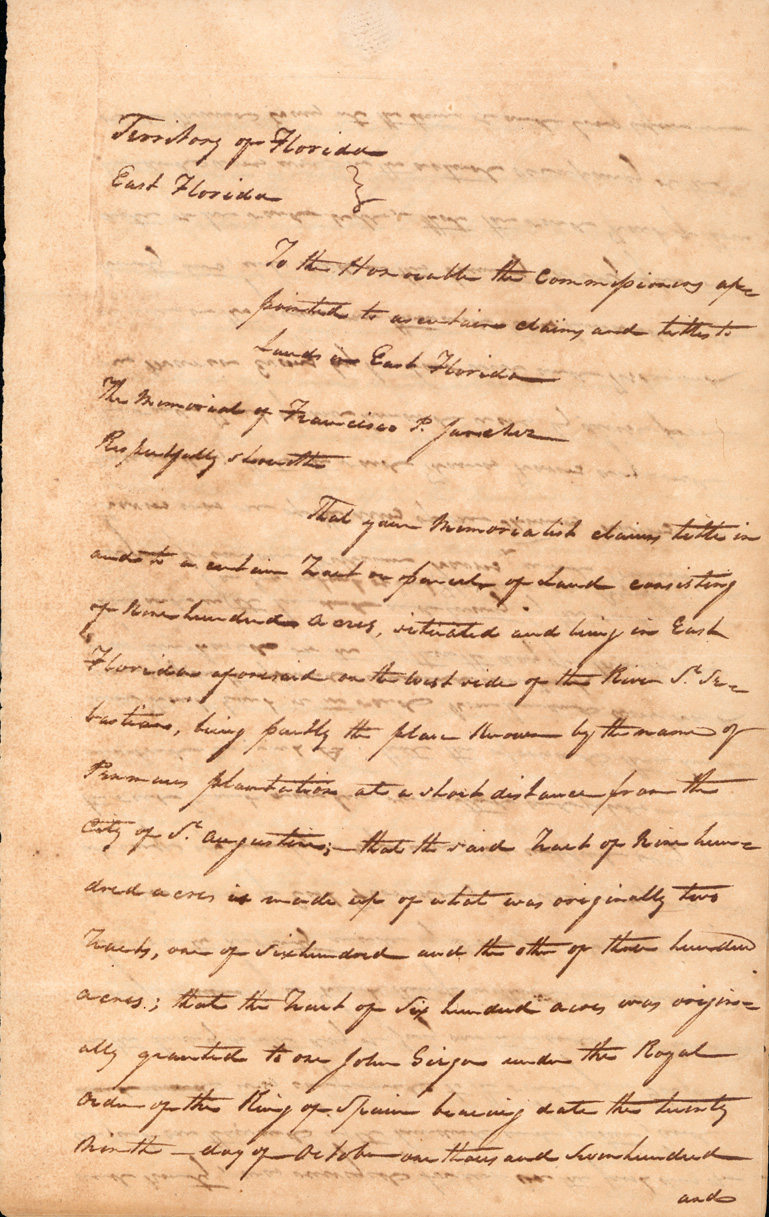 Territory of Florida
East Florida }
To the Honourable the Commissioners ap=
pointed to ascertain claims and titles to
Lands in East Florida
The Memorial of Francisco P. Sanchez
Respectfully sheweth
That your Memorialist claims title in
and to a certain Tract or parcel of Land consisting
of Nine hundred Acres, situated and being in East
Florida aforesaid on the west side of the River St. Se=
bastian, being partly the place known by the name of
plantation at a short distance from the
City of St. Augustine; – that the said Tract of Nine hun=
dred acres is made up of what was originally two
Tracts, one of six hundred and the other of three hundred
acres.; that the Tract of Six hundred acres was origin=
ally granted to one John under the Royal
Order of the King of Spain bearing date the twenty
Ninth – day of October one thousand Seven hundred
and